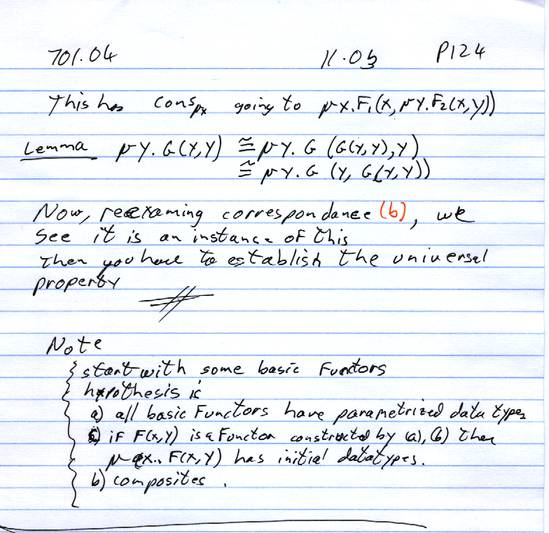 701.04 11.03 P124
This has cons going to μX.F₁(X, μY.F₂(X,Y))
Lemma μY.G(Y,Y) ≅ μY.G (G(Y,Y),Y)
≅ μY.G (Y, G(Y,Y))
Now, reexaming correspondance (b), we
see it is an instance of this
Then you have to establish the universal
property
Note
start with some basic Functors
hypothesis is
a) all basic Functors have parametrized data types
c) if F(X,Y) is a Functor constructed by (a), (b) then
μX. F(X,Y) has initial datatypes.
b) composites.